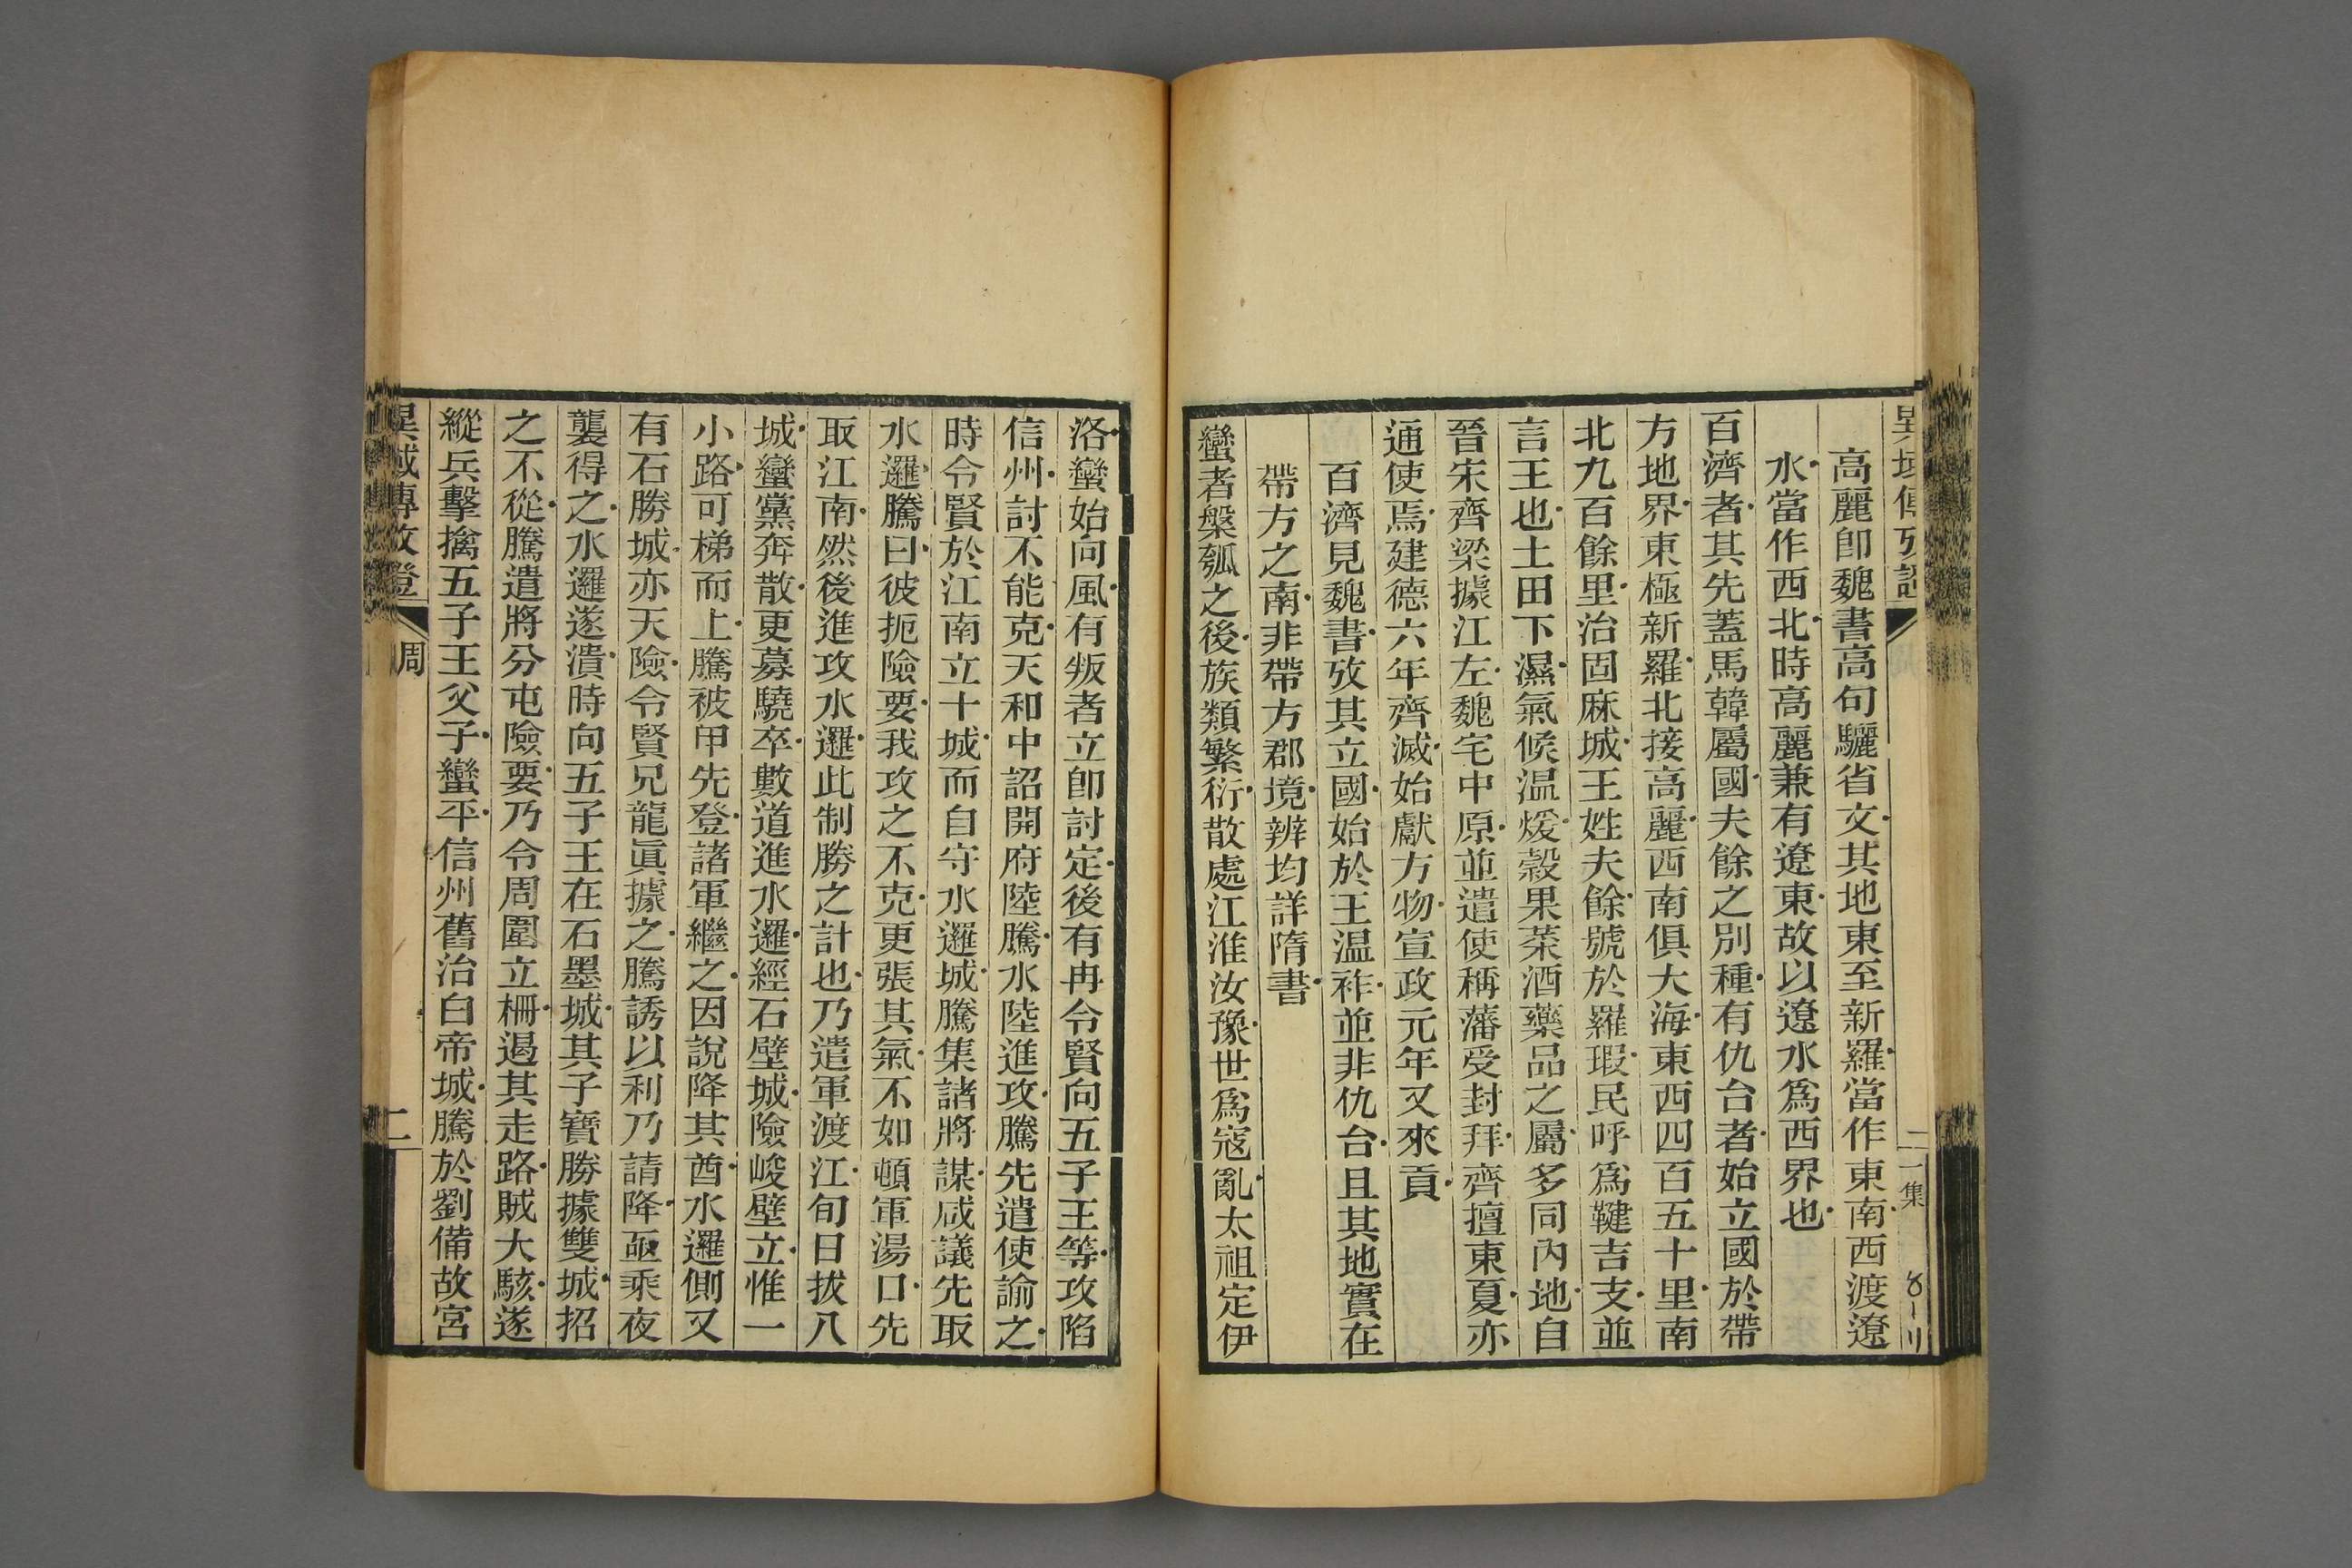 高麗卽魏書高句驪省文其地東至新羅當作東南西渡遼
水當作西北時高麗兼有遼東故以遼水爲西界也
百濟者其先蓋馬韓屬國夫餘之別種有仇台者始立國於帶
方地界東極新羅北接高麗西南俱大海東西四百五十里南
北九百餘里治固麻城王姓夫餘號於羅瑕民呼爲鞬吉支並
言王也土田下濕氣候温煖穀果菜酒藥品之屬多同內地自
晉宋齊梁據江左魏宅中原並遣使稱藩受封拜齊擅東夏亦
通使焉建德六年齊滅始獻方物宣政元年又來貢
百濟見魏書攷其立國始於王温祚並非仇台且其地實在
帶方之南非帶方郡境辨均詳隋書
蠻者槃瓠之後族類繁衍散處江淮汝豫世爲寇亂太祖定伊
洛蠻始向風有叛者立卽討定後有冉令賢向五子王等攻陷
信州討不能克天和中詔開府陸騰水陸進攻騰先遣使諭之
時令賢於江南立十城而自守水邏城騰集諸將謀咸議先取
水邏騰曰彼扼險要我攻之不克更張其氣不如頓軍湯口先
取江南然後進攻水邏此制勝之計也乃遣軍渡江旬日拔八
城蠻黨奔散更募驍卒數道進水邏經石壁城險峻壁立惟一
小路可梯而上騰被甲先登諸軍繼之因說降其酋水邏側又
有石勝城亦天險令賢兄龍眞據之騰誘以利乃請降亟乘夜
襲得之水邏遂潰時向五子王在石墨城其子寶勝據雙城招
之不從騰遣將分屯險要乃令周圍立柵遏其走路賊大駭遂
縱兵擊擒五子王父子蠻平信州舊治白帝城騰於劉備故宮
異域傳攷證
周
二
一集